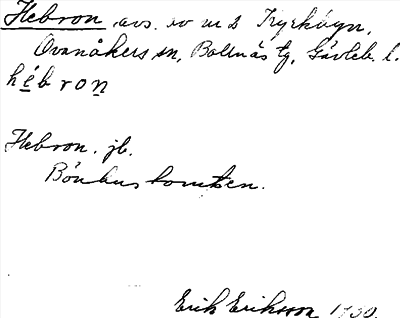 Hebron. avs. av nr 2 Kyrkbyn,
Ovanåkers sn, Bollnäs tg, Gävleb. l.
hébron
Hebron. jb.
Bönhustomten.
Erik Eriksson 1930.